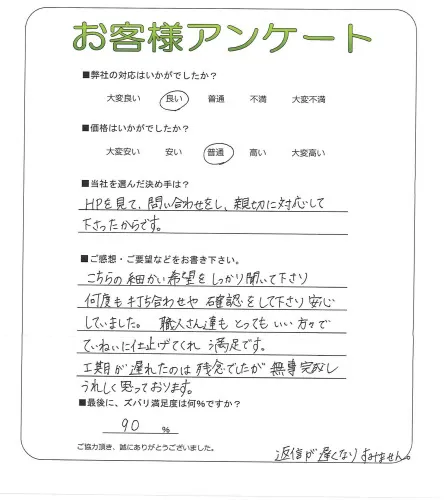 お客様アンケート
■弊社の対応はいかがでしたか？
大変良い 良い 普通 不満 大変不満
■価格はいかがでしたか？
大変安い 安い 普通 高い 大変高い
■当社を選んだ決め手は？
HPを見て、問い合わせをし、親切に対応して
下さったからです。
■ご感想・ご要望などをお書き下さい。
こちらの細かい希望をしっかり聞いて下さり
何度も打ち合わせや確認をして下さり安心
していました。職人さん達もとってもいい方々で
ていねいに仕上げてくれ満足です。
工期が遅れたのは残念でしたが無事完成し
うれしく思っております。
■最後に、ズバリ満足度は何%ですか？
90 %
ご協力頂き、誠にありがとうございました。
返信が遅くなりすみません。